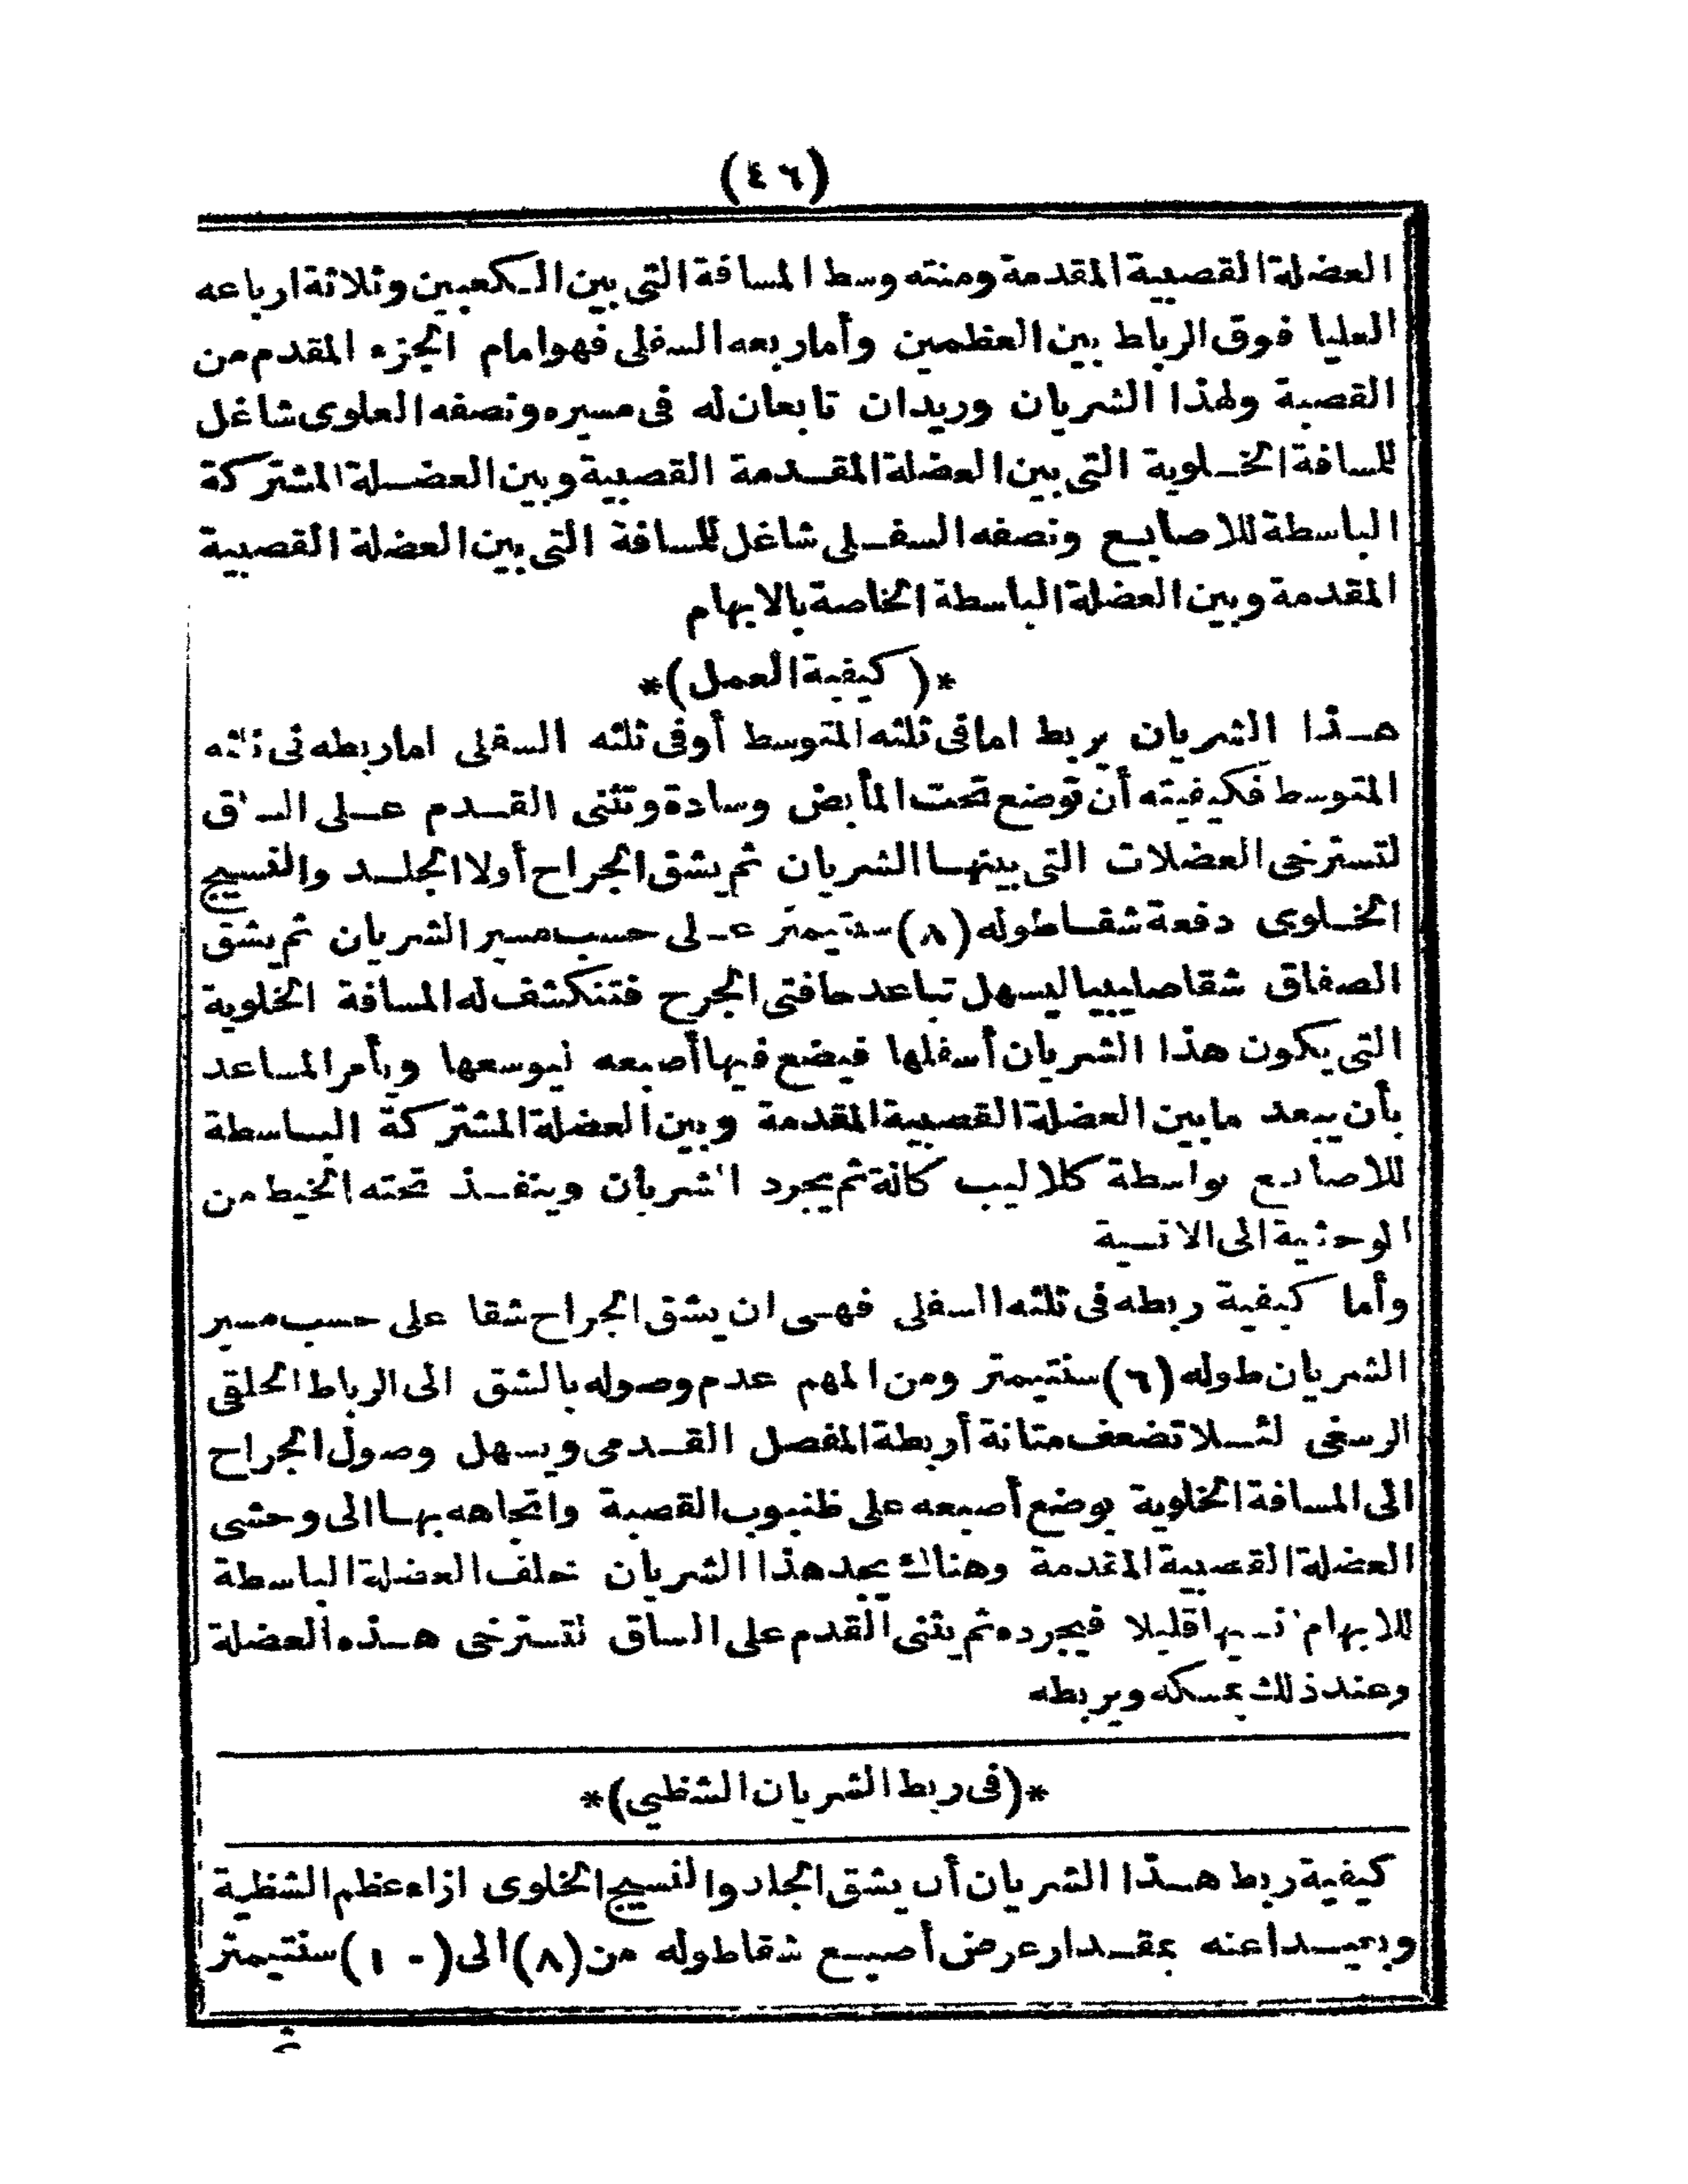 (٤٦)
العضلة القصبية المقدمة ومنته وسط المسافة التى بين الكعبين وثلاثة ارباعه
العليا فوق الرباط بين العظمين وأما ربعه السفلى فهو امام الجزء المقدم من
القصبة ولهذا الشريان وريدان تابعان له فى مسيره ونصفه العلوى شاغل
للمسافة الخلوية التى بين العضلة المقدمة القصبية وبين العضلة المشتركة
الباسطة للاصابع ونصفه السفلى شاغل للمسافة التى بين العضلة القصبية
المقدمة وبين العضلة الباسطة الخاصة بالابهام
*(كيفية العمل)*
هذا الشريان يربط اما فى ثلثه المتوسط أو فى ثلثه السفلى اما ربطه فى ثلثه
المتوسط فكيفيته أن توضع تحت المأبض وسادة وتثنى القدم على الساق
لتسترخى العضلات التى بينها الشريان ثم يشق الجراح أولا الجلد والنسيج
الخلوى دفعة شقا طوله (٨) سنتيمتر على حسب مسير الشريان ثم يشق
الصفاق شقا صليبيا ليسهل تباعد حافتى الجرح فتنكشف له المسافة الخلوية
التى يكون هذا الشريان أسفلها فيضع فيها أصبعه ليوسعها ويأمر المساعد
بأن يبعد ما بين العضلة القصبية المقدمة وبين العضلة المشتركة الباسطة
للاصابع بواسطة كلاليب كالة ثم يجرد الشريان وينفذ تحته الخيط من
الوحشية الى الانسية
وأما كيفية ربطه فى ثلثه السفلى فهى ان يشق الجراح شقا على حسب مسير
الشريان طوله (٦) سنتيمتر ومن المهم عدم وصوله بالشق الى الرباط الحلقى
الرسغى لئلا تضعف متانة أربطة المفصل القدمى ويسهل وصول الجراح
الى المسافة الخلوية بوضع أصبعه على ظنبوب القصبة واتجاهه بها الى وحشى
العضلة القصبية المقدمة وهناك يجد هذا الشريان خلف العضلة الباسطة
للابهام قليلا فيجرده ثم يثنى القدم على الساق لتسترخى هذه العضلة
وعند ذلك يمسكه ويربطه
*(فى ربط الشريان الشظيى)*
كيفية ربط هذا الشريان أن يشق الجلد والنسيج الخلوى ازاء عظم الشظية
وبعيدا عنه بمقدار عرض أصبع شقا طوله من (٨) الى (١٠) سنتيمتر
ثم